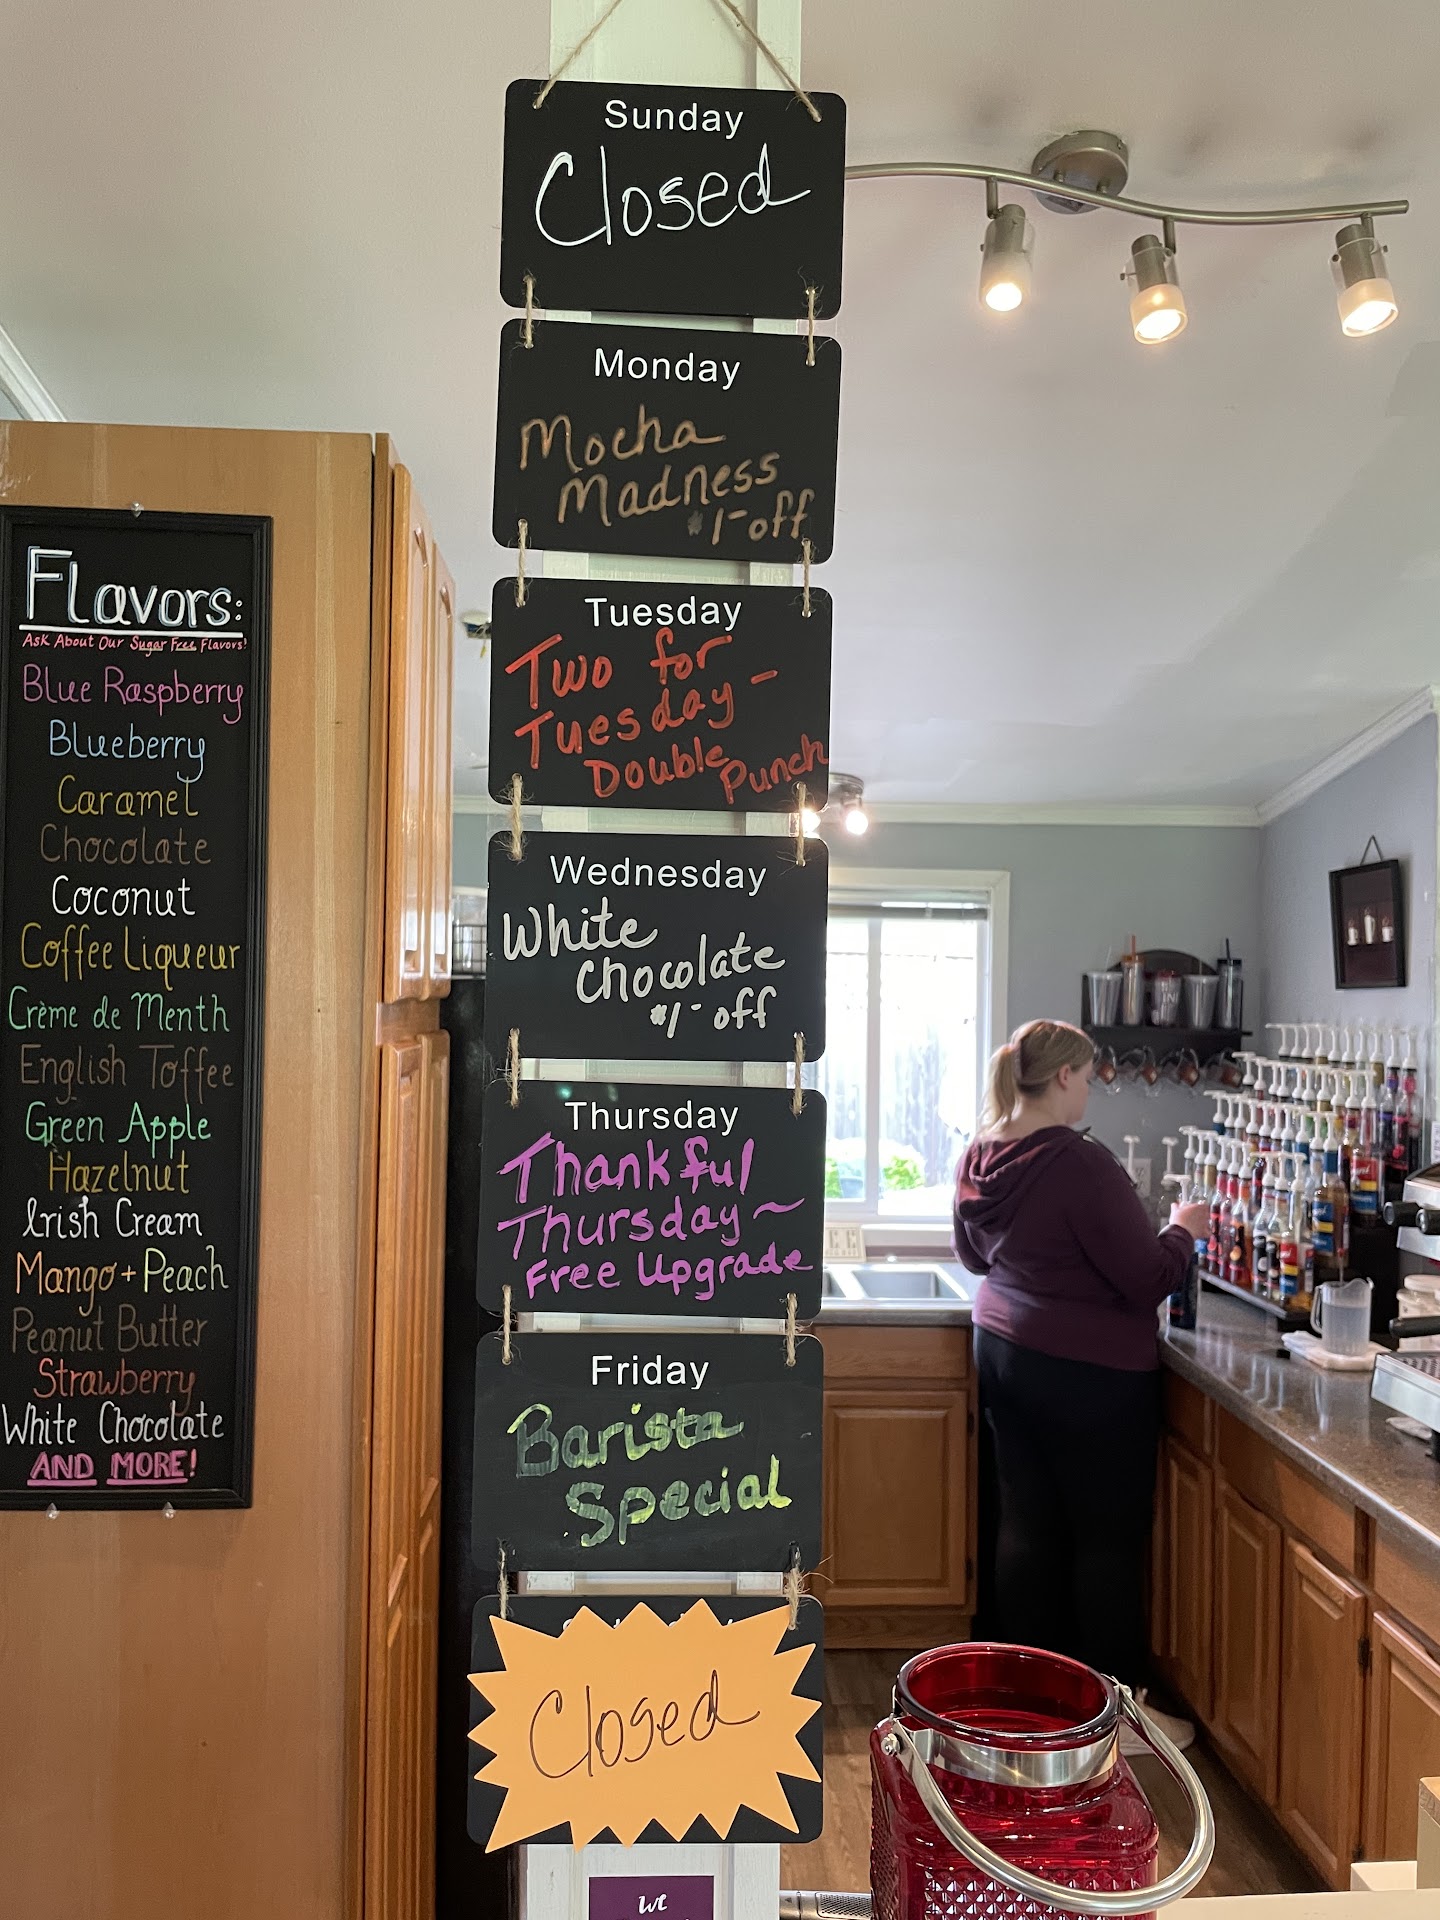 Sunday
Closed
Monday
Mocha
Madness
$1- off
Tuesday
Two for
Tuesday -
Double Punch
Wednesday
White
Chocolate
$1- off
Thursday
Thankful
Thursday ~
Free Upgrade
Friday
Barista
Special
Closed
we
Flavors:
Ask About Our Sugar Free Flavors!
Blue Raspberry
Blueberry
Caramel
Chocolate
Coconut
Coffee Liqueur
Crème de Menth
English Toffee
Green Apple
Hazelnut
Irish Cream
Mango + Peach
Peanut Butter
Strawberry
White Chocolate
AND MORE!